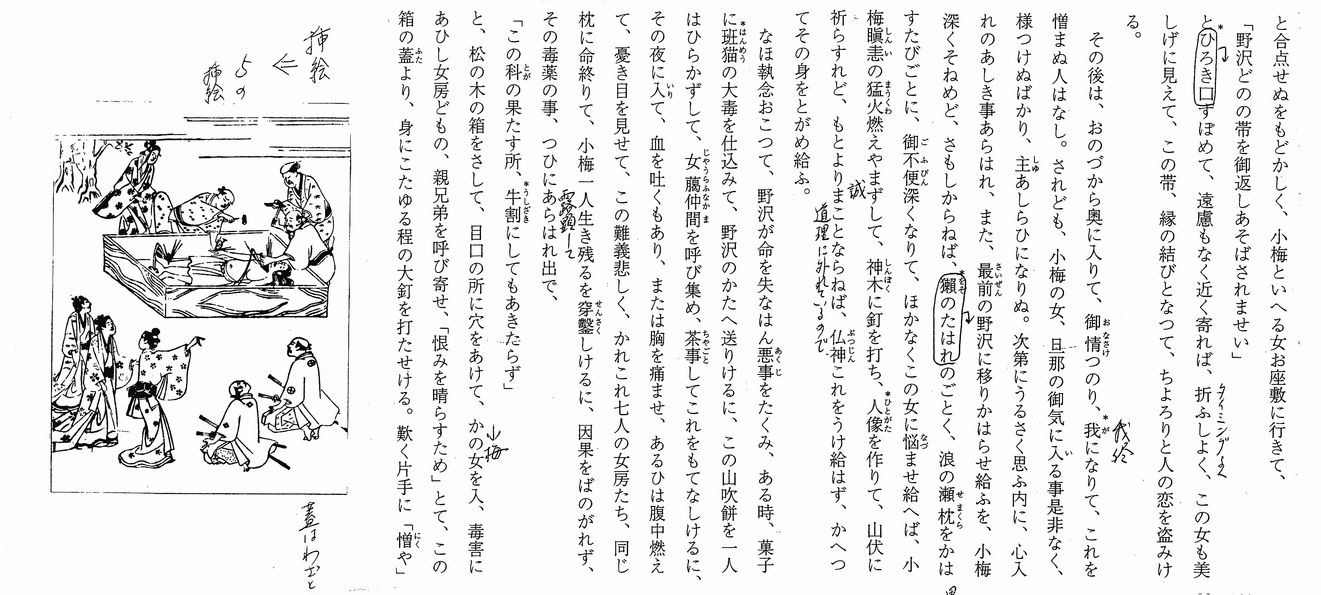 と合点せぬをもどかしく、小梅といへる女お座敷に行きて、
「野沢どのの帯を御返しあそばされませい」
とひろき口すぼめて、遠慮もなく近く寄れば、折ふしよく、この女も美
しげに見えて、この帯、縁の結びとなつて、ちよろりと人の恋を盗みけ
る。
タイミングよく
その後は、おのづから奥に入りて、御情つのり、我になりて、これを
憎まぬ人はなし。されども、小梅の女、旦那の御気に入る事是非なく、
様つけぬばかり、主あしらひになりぬ。次第にうるさく思ふ内に、心入
れのあしき事あらはれ、また、最前の野沢に移りかはらせ給ふを、小梅
深くそねめど、さもしからねば、獺のたはれのごとく、浪の瀬枕をかは
すたびごとに、御不便深くなりて、ほかなくこの女に悩ませ給へば、小
梅瞋恚の猛火燃えやまずして、神木に釘を打ち、人像を作りて、山伏に
祈らすれど、もとよりまことならねば、仏神これをうけ給はず、かへつ
誠
道理に外れているので
てその身をとがめ給ふ。
なほ執念おこつて、野沢が命を失なはん悪事をたくみ、ある時、菓子
に班猫の大毒を仕込みて、野沢のかたへ送りけるに、この山吹餅を一人
はひらかずして、女﨟仲間を呼び集め、茶事してこれをもてなしけるに、
その夜に入て、血を吐くもあり、または胸を痛ませ、あるひは腹中燃え
て、憂き目を見せて、この難義悲しく、かれこれ七人の女房たち、同じ
枕に命終りて、小梅一人生き残るを穿鑿しけるに、因果をばのがれず、
露顕して
その毒薬の事、つひにあらはれ出で、
「この科の果たす所、牛割にしてもあきたらず」
と、松の木の箱をさして、目口の所に穴をあけて、かの女を入、毒害に
小梅
あひし女房どもの、親兄弟を呼び寄せ、「恨みを晴らすため」とて、この
箱の蓋より、身にこたゆる程の大釘を打たせける。歎く片手に「憎や」
挿絵
ちの
挿絵
蓋はわざと